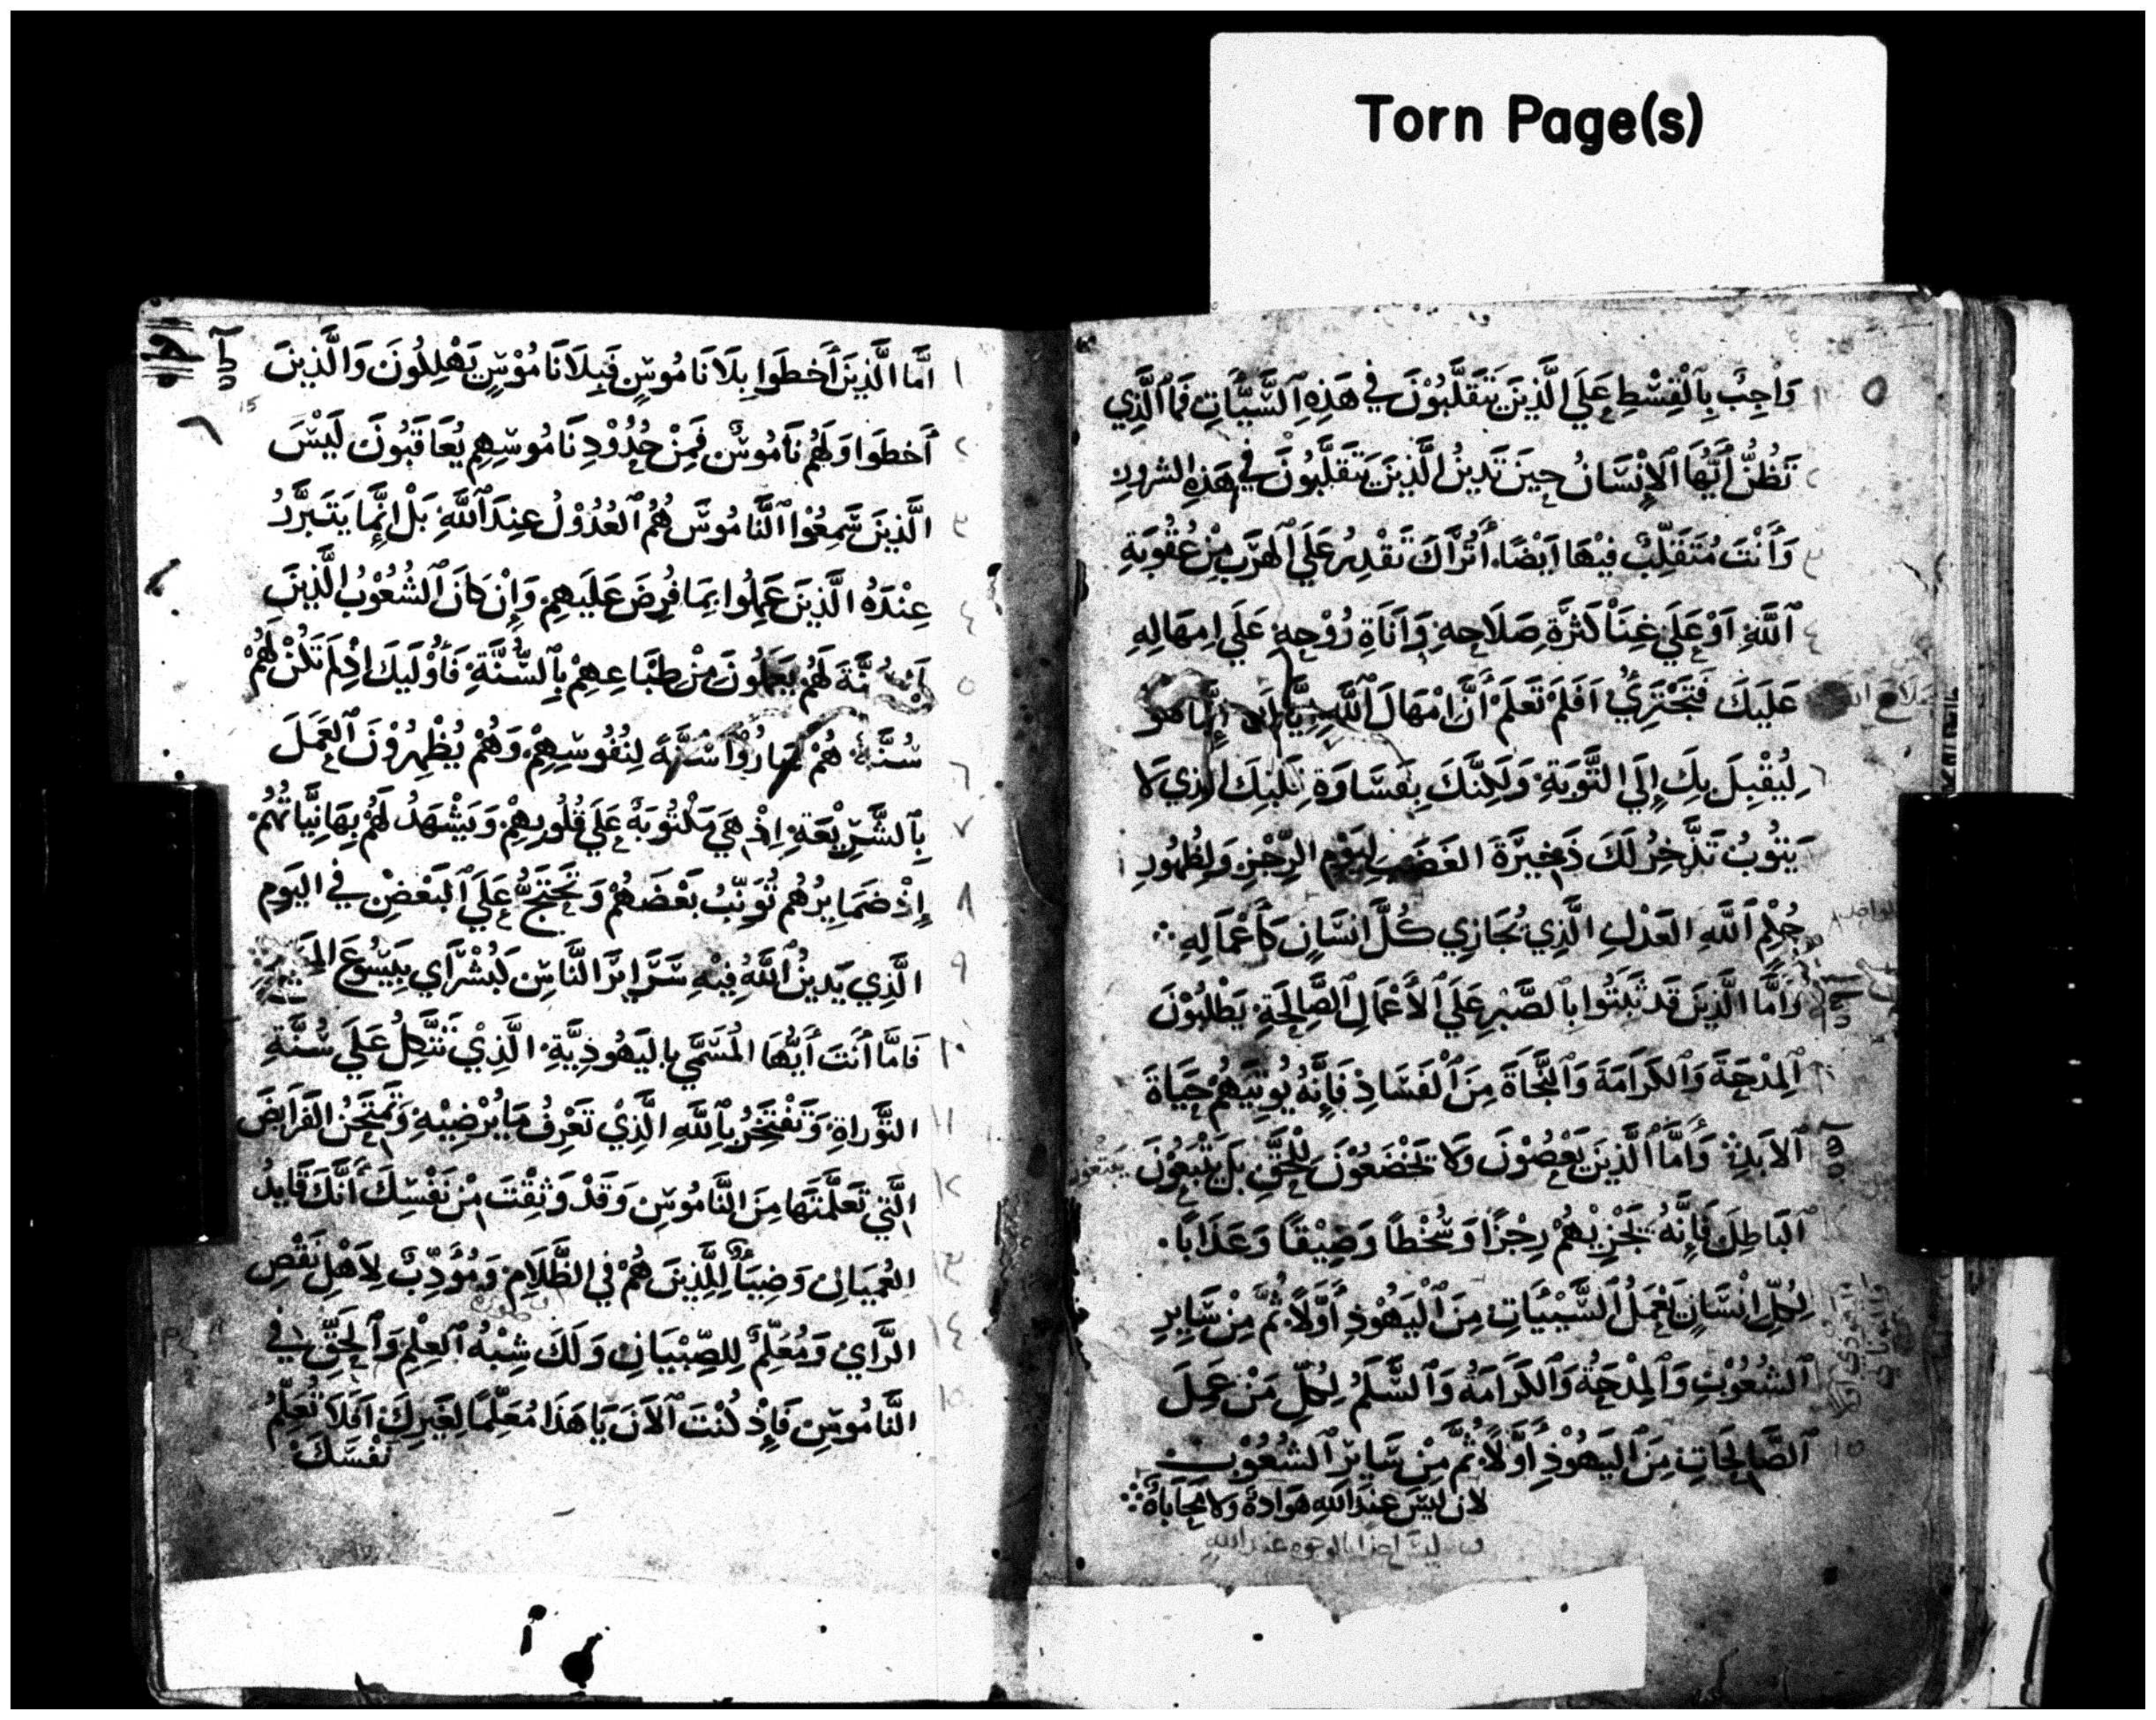 Torn Page(s)
وَاجِبٌ بِالْقِسْطِ عَلَى الَّذِينَ يَتَقَلَّبُوْنَ في هَذِهِ السَّيَّاتِ فَمَا الَّذِي
تَظُنُّ أَيُّهَا الإِنْسَانُ حِينَ تَدِينُ الَّذِينَ يَتَقَلَّبُونَ في هَذِهِ الشرورِ
وَأَنْتَ مُتَقَلِّبٌ فيْهَا اَيْضًا أَتُرَاكَ تَقْدِرُ عَلَي الْهَرَبِ مِنْ عُقُوبَةِ
اللَّهِ اَوْ عَلَي غِنَا كَثرَةِ صَلَاحِهِ وَاَنَاةِ رُوْحِهِ عَلَي اِمهَالِهِ
عَلَيكَ فَتَجْتَرِيُ اَفَلَمْ تَعلَمْ أَنَّ اِمْهَالَ اللَّهِ إِيَّاكَ إِنَّمَا هو
لِيُقْبِلَ بِكَ إِلَي التَّوبَةِ وَلَكِنَّكَ بِقَسَاوَةِ قَلبِكَ الذِي لا
يَتُوبُ تَدَّخِرُ لَكَ ذَخِيرَةَ الغَضَبِ لِيَوْمِ الرِّجْزِ وَلِظهُورِ
حُكْمِ اللَّهِ العَدْلِ الَّذِي يُجَازِي كُلَّ انسَانٍ كَأَعْمَالِهِ
وَاَمَّا الَّذِينَ قَد ثَبَتُوا بِالصَّبْرِ عَلَي الأَعْمَالِ الصَّالِحَةِ يَطْلُبُوْنَ
المِدْحَةَ وَالكَرَامَةَ وَالنَّجَاةَ مِنَ الْفَسَادِ فَإِنَّهُ يُوتِيَهُمْ حَيَاةَ
الاَبَدِ وَأَمَّا الَّذِينَ يَعْصُوْنَ وَلا يَخْضَعُوْنَ لِلْحَقِّ بل يَتْبَعُوْنَ
البَاطِلَ فَإِنَّهُ يَجْزِيْهُمْ رِجْزًا وَسُخْطًا وَضِيْقًا وَعَذَابًا
لِكُلِّ اِنْسَانٍ يَعْمَلُ السَّيِّئَاتِ مِنَ الْيَهُوْدِ أَوَّلاً ثُمَّ مِنْ سَايِرِ
الشُعُوْبِ وَالمِدْحَةُ وَالكَرَامَةُ وَالسَّلَمُ لِكُلِّ مَنْ عَمِلَ
الصَّالِحَاتِ مِنَ اليَهُوْدِ أَوَّلاً ثُمَّ مِنْ سَايِرِ الشُعُوْبِ
لان ليسَ عِندَ اللهِ هَوَادَةٌ وَلا مُحَابَاةٌ
١ اَمَّا الَّذِينَ أَخطَوا بِلَا نَامُوسٍ فَبِلَا نَامُوْسٍ يَهْلِكُونَ وَالَّذِينَ
٢ أَخطَوا وَلَهُم نَامُوسٌ فَمِنْ حُدُوْدِ نَامُوسِهِم يُعَاقَبُونَ لَيْسَ
٣ الَّذِينَ سَمِعُوْا النَّامُوسَ هُمُ العُدُوْلُ عِندَ اللَّهِ بَلْ إِنَّمَا يَتَبَرَّرُ
٤ عِنْدَهُ الَّذِينَ عَمِلُوا بِمَا فُرِضَ عَلَيهِمْ وَإِنْ كَانَ الشُعُوْبُ الَّذِينَ
٥ لَا سُنَّةَ لَهُم يَعمَلُونَ مِنْ طِبَاعِهِمْ بِالسُّنَّةِ فَأُوْلَيكَ اِذْ لَم تَكُنْ لَهُمْ
٦ سُنَّة هُمْ صَارُوْا سُنَّةً لِنُفُوسِهِمْ وَهُمْ يُظْهِرُوْنَ العَمَلَ
٧ بِالشَّرِيْعَةِ اِذْ هيَ مَكْتُوبَةٌ عَلَي قُلُوبِهِمْ وَيَشْهَدُ لَهُم بِهَا نِيَّاتُهُمْ
٨ إِذْ ضَمَايِرُهُم تُوَنِّبُ بَعْضَهُمْ وَتَحْتَجُّ عَلَي البَعْضِ في اليَومِ
٩ الَّذِي يَدِينُ اللَّهُ فِيْهِ سَرَايِرَ النَّاسِ كَبُشْرَاي بِيَسُوعَ المَسِيحِ
١٠ فَامَّا أَنتَ أَيُّهَا المُسَمَّي بِاليَهُودِيَّةِ الَّذِيْ تَتَّكِلُ عَلَي سُنَّةِ
١١ التَّورَاةِ وَتَفْتَخِرُ بِاللَّهِ الَّذِيْ تَعْرِفُ مَا يُرْضِيْهِ وَتَمتَحِنُ الفَرَايضَ
١٢ الَّتِي تَعَلَّمْتَهَا مِنَ النَّامُوسِ وَقَدْ وَثِقْتَ مِنْ نَفْسِكَ أَنَّكَ قَايدُ
١٣ العُميَانِ وَضِيَاً لِلَّذِينَ هُمْ في الظَّلَامِ وَمُوَدِّبٌ لِأَهْلِ نَقْصِ
١٤ الرَّايِ وَمُعَلِّمٌ لِلصِّبْيَانِ وَلَكَ شِبْهُ العِلْمِ وَالحَقِّ في
١٥ النَّامُوسِ فَإِذْ كُنْتَ الاَنَ يَا هَذَا مُعَلِّمًا لِغَيرِكَ اَفَلَا تُعَلِّمُ
نَفْسَكَ